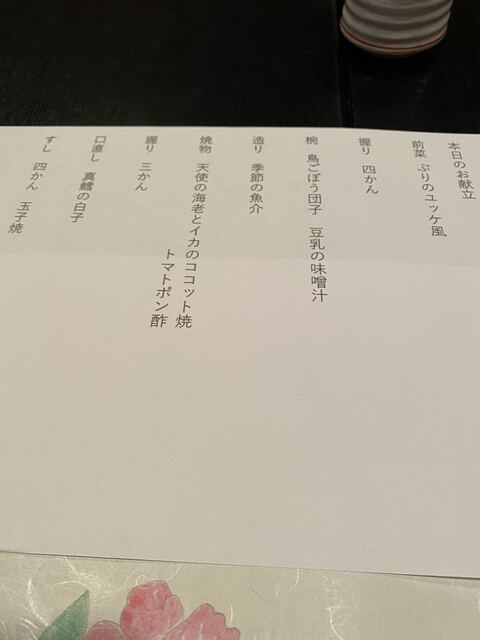 本日のお献立
前菜 ぶりのユッケ風
握り 四かん
椀 鳥ごぼう団子 豆乳の味噌汁
造り 季節の魚介
焼物 天使の海老とイカのココット焼
トマトポン酢
握り 三かん
口直し 真鱈の白子
すし 四かん 玉子焼